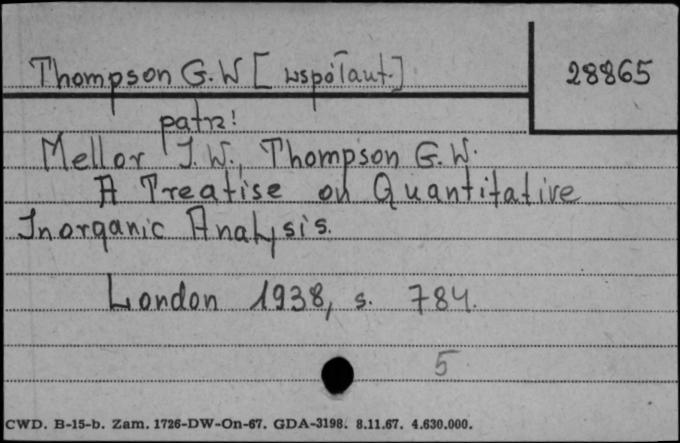 Thompson G.W [współaut.]
28865
patrz!
Mellor J.W., Thompson G.W.
A Treatise on Quantitative
Inorganic Analysis.
London 1938, s. 784.
5
CWD. B-15-b. Zam. 1726-DW-On-67. GDA-3198. 8.11.67. 4.630.000.